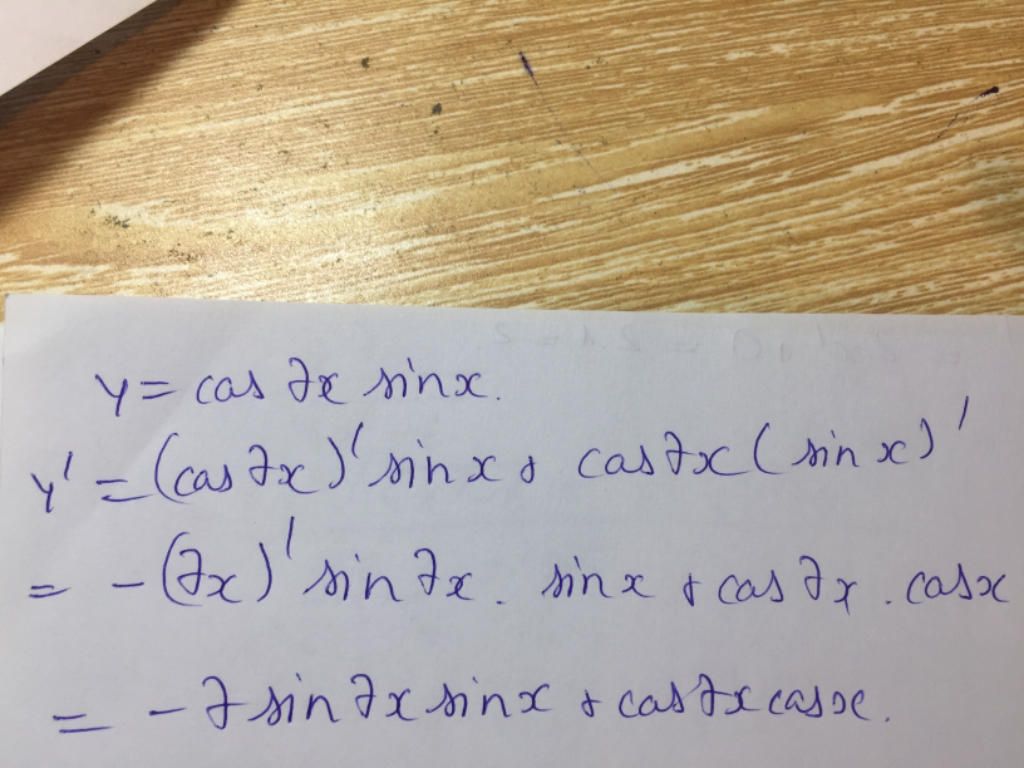 y = cos 2x sinx.
y' = (cos 2x)' sin x + cos 2x (sin x)'
= - (2x)' sin 2x . sin x + cos 2x . cosx
= - 2 sin 2x sin x + cos 2x cosx.